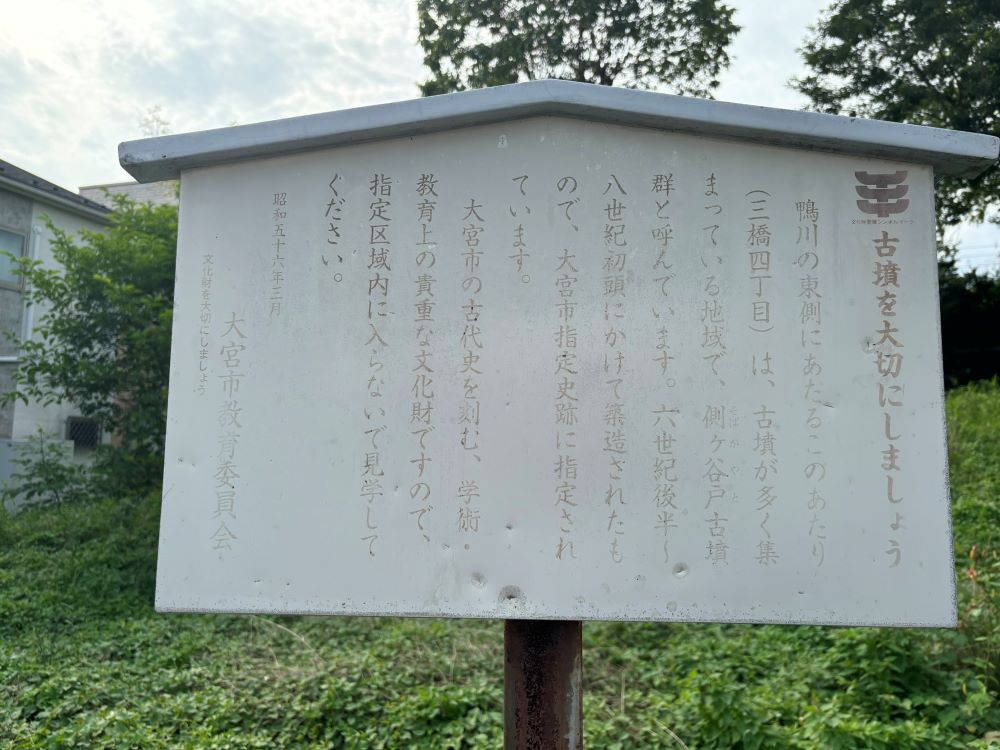 文化財愛護シンボルマーク
古墳を大切にしましょう
鴨川の東側にあたるこのあたり
(三橋四丁目)は、古墳が多く集
まっている地域で、側ヶ谷戸古墳
そばがやと
群と呼んでいます。六世紀後半〜
八世紀初頭にかけて築造されたも
ので、大宮市指定史跡に指定され
ています。
大宮市の古代史を刻む、学術・
教育上の貴重な文化財ですので、
指定区域内に入らないで見学して
ください。
昭和五十六年三月
大宮市教育委員会
文化財を大切にしましょう